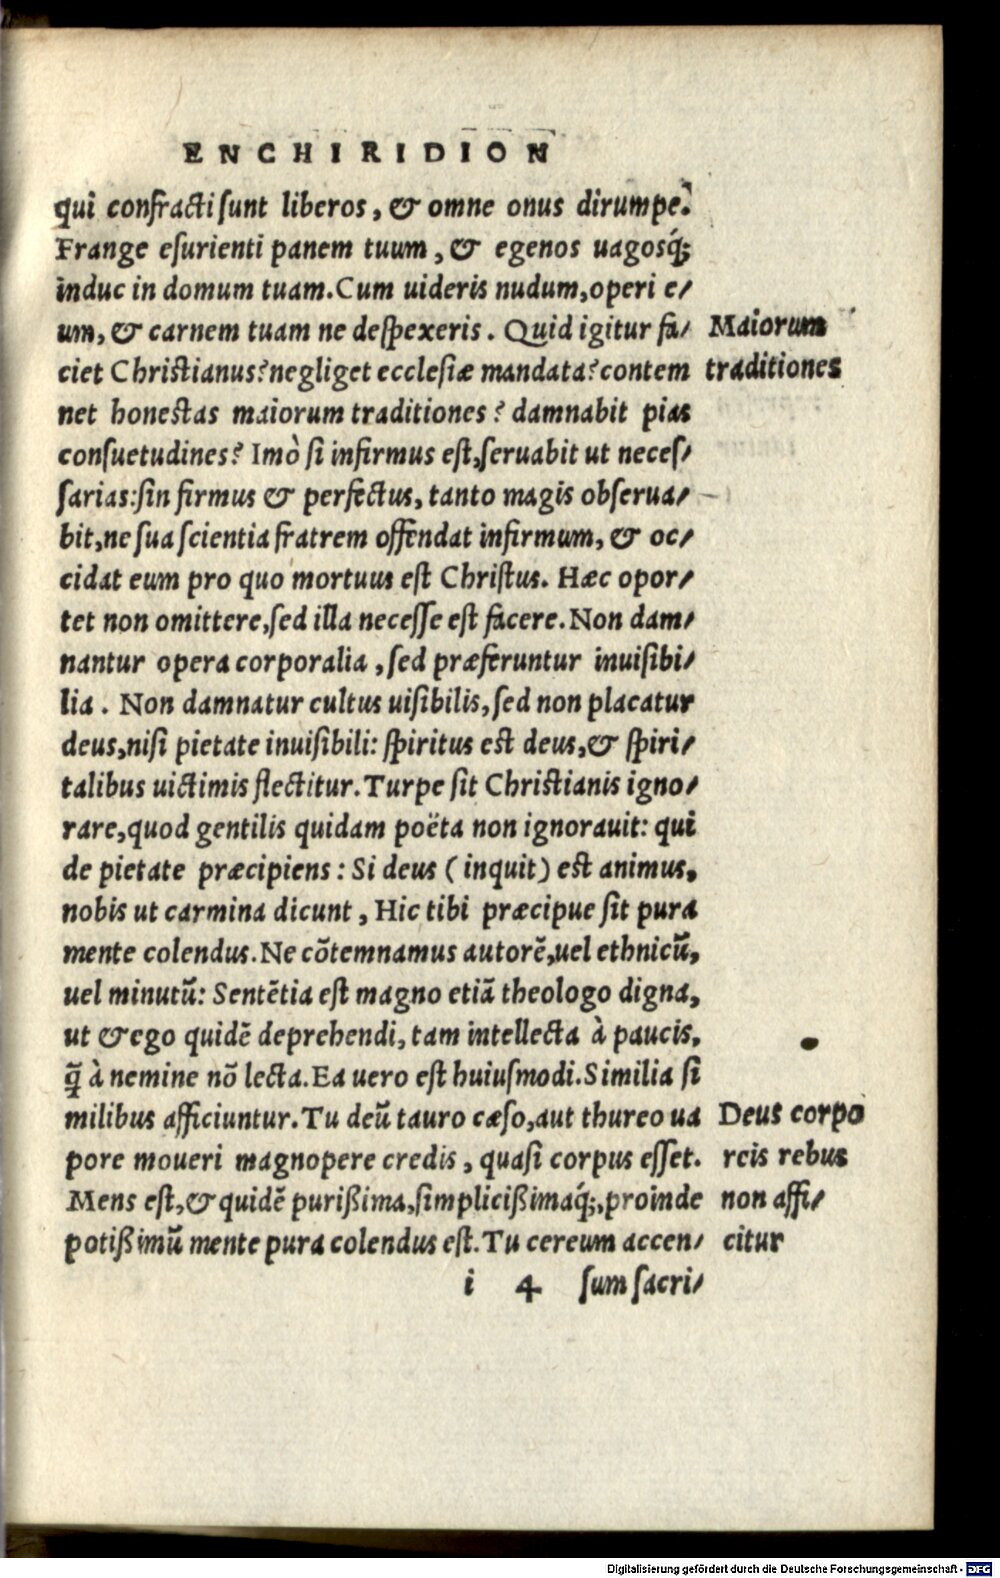 ENCHIRIDION
qui confracti sunt liberos, & omne onus dirumpe.
Frange esurienti panem tuum, & egenos uagosq́;
induc in domum tuam. Cum uideris nudum, operi e/
um, & carnem tuam ne despexeris. Quid igitur fa/
ciet Christianus? negliget ecclesiæ mandata? contem
net honestas maiorum traditiones? damnabit pias
consuetudines? Imò si infirmus est, seruabit ut neces/
sarias: sin firmus & perfectus, tanto magis obserua/
bit, ne sua scientia fratrem offendat infirmum, & oc/
cidat eum pro quo mortuus est Christus. Hæc opor/
tet non omittere, sed illa necesse est facere. Non dam/
nantur opera corporalia, sed præferuntur inuisibi/
lia. Non damnatur cultus uisibilis, sed non placatur
deus, nisi pietate inuisibili: spiritus est deus, & spiri/
talibus uictimis flectitur. Turpe sit Christianis igno/
rare, quod gentilis quidam poëta non ignorauit: qui
de pietate præcipiens: Si deus (inquit) est animus,
nobis ut carmina dicunt, Hic tibi præcipue sit pura
mente colendus. Ne cõtemnamus autorẽ, uel ethnicũ,
uel minutũ: Sentẽtia est magno etiã theologo digna,
ut & ego quidẽ deprehendi, tam intellecta à paucis,
q̃ à nemine nõ lecta. Ea uero est huiusmodi. Similia si
milibus afficiuntur. Tu deũ tauro cæso, aut thureo ua
pore moueri magnopere credis, quasi corpus esset.
Mens est, & quidẽ purißima, simplicißimaq́;, proinde
potißimũ mente pura colendus est. Tu cereum accen/
i 4 sum sacri/
Maiorum
traditiones
Deus corpo
reis rebus
non affi/
citur
Digitalisierung gefördert durch die Deutsche Forschungsgemeinschaft - DFG